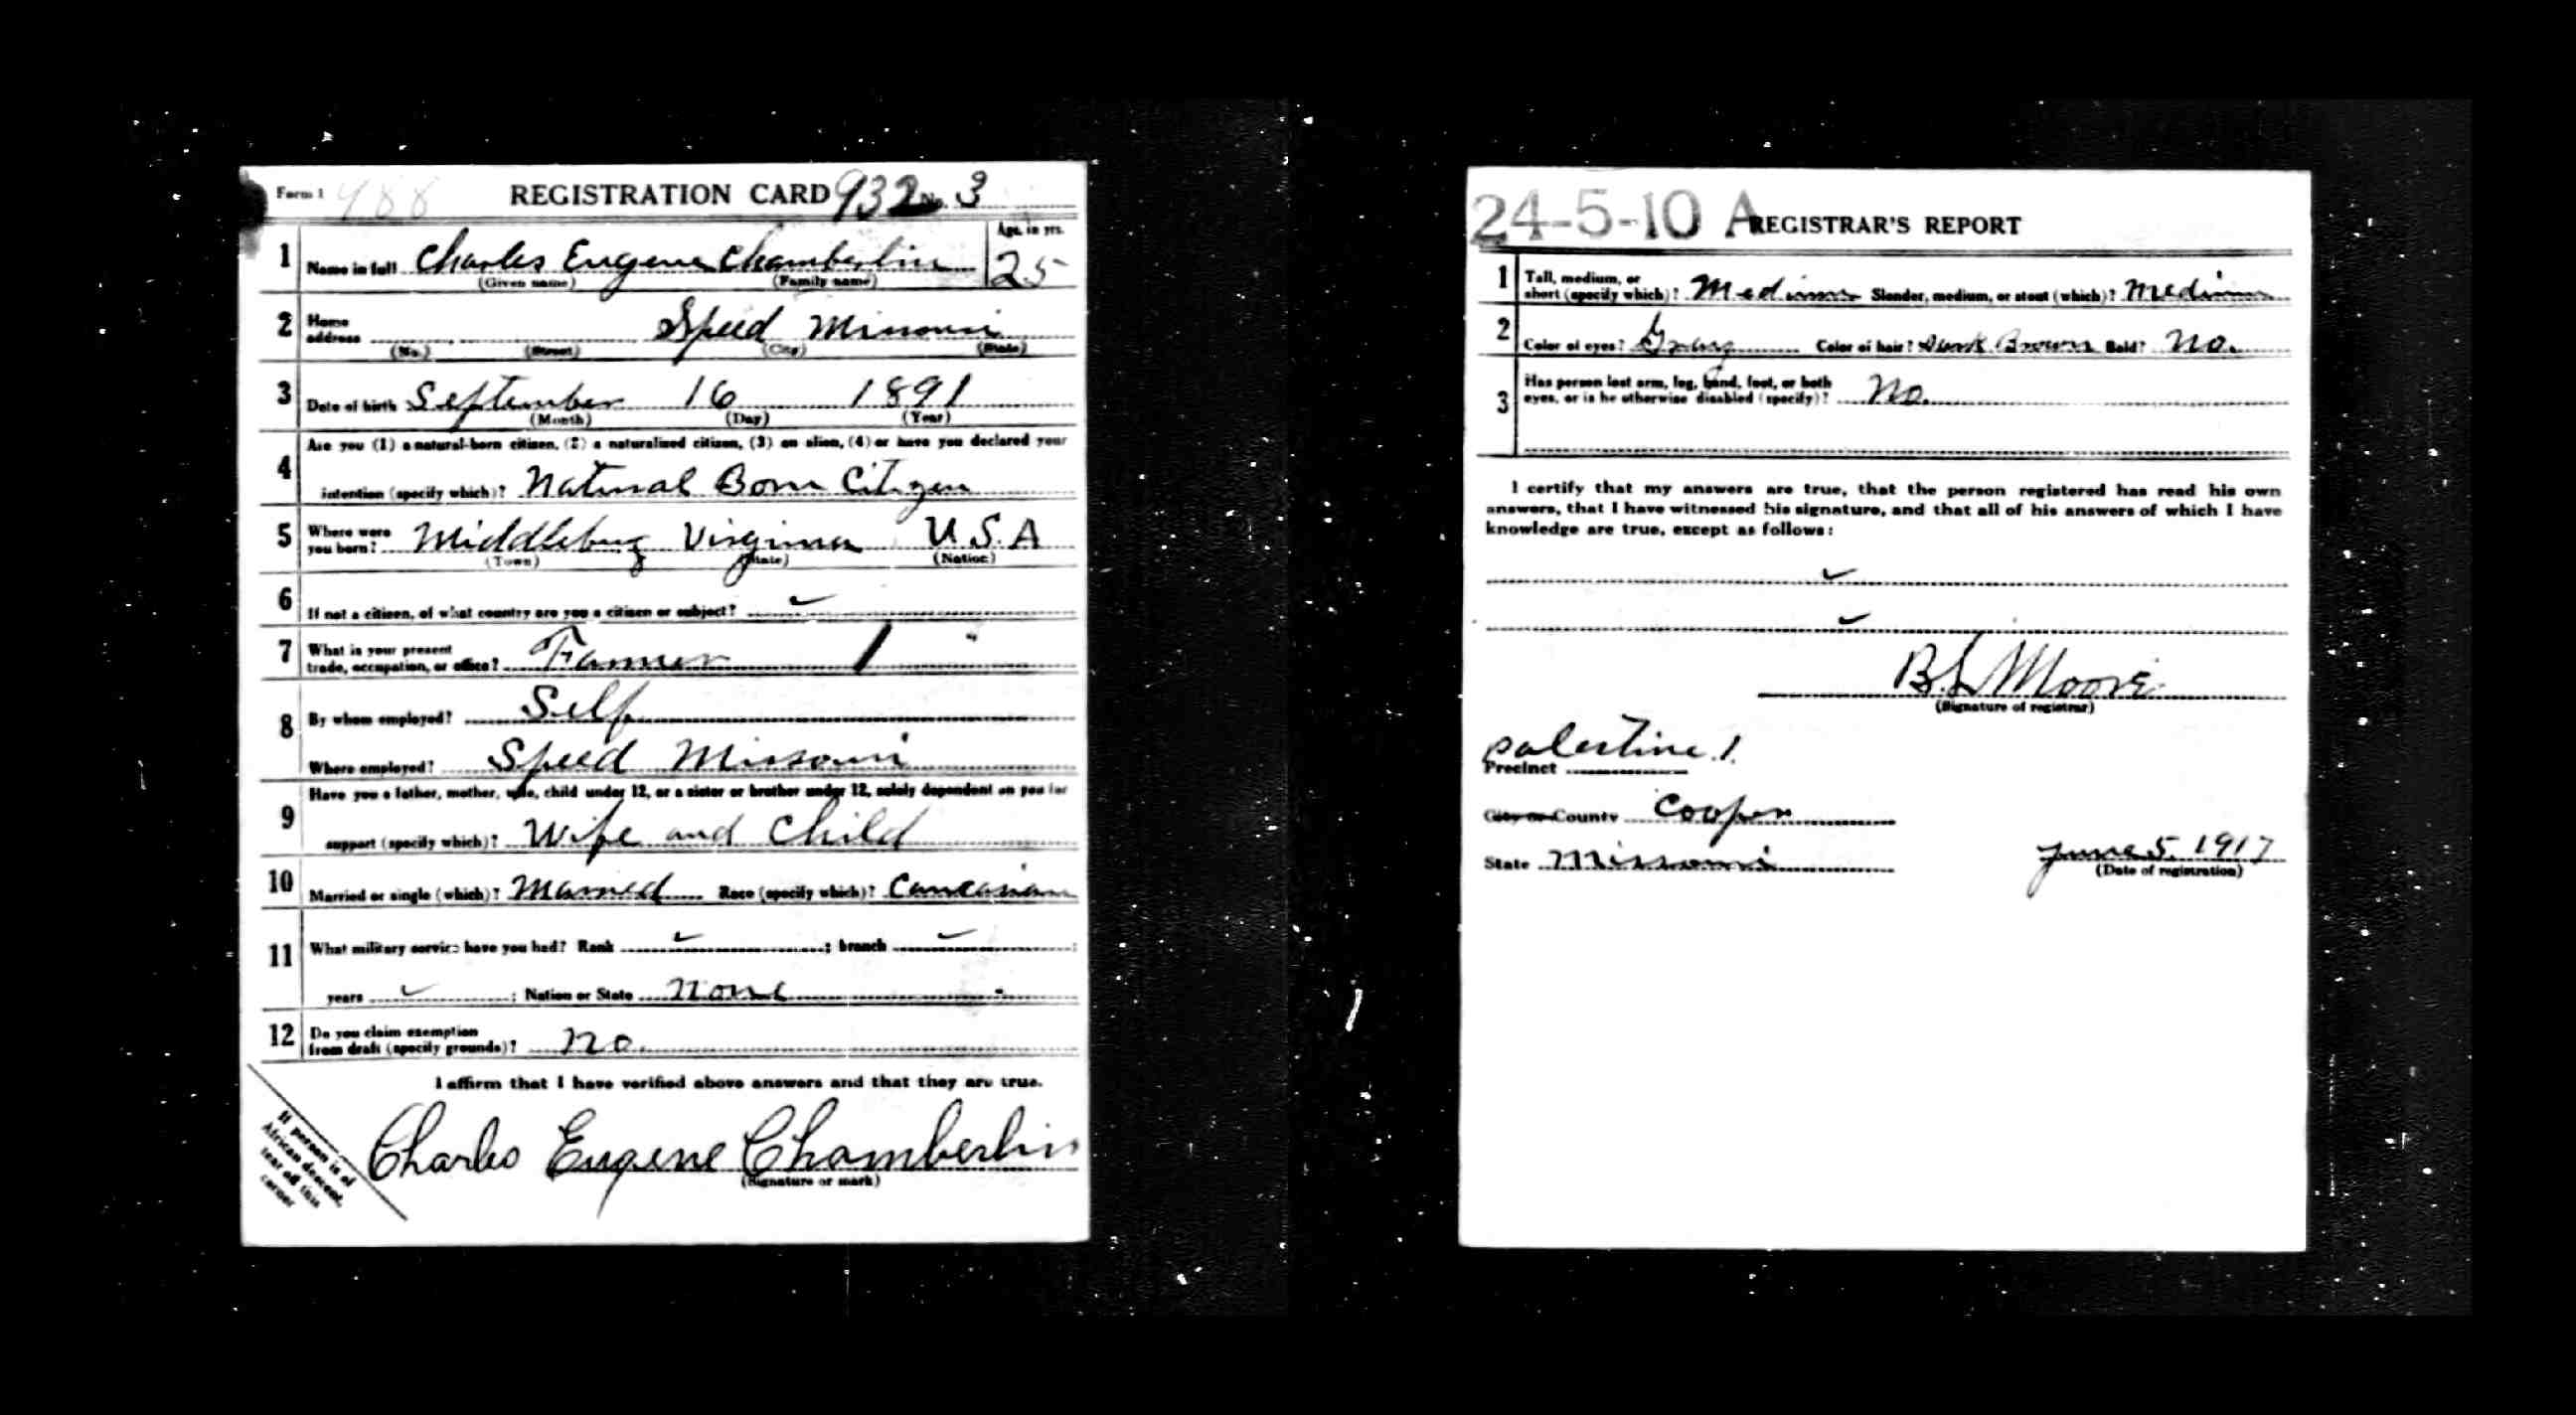 Form 1 988 REGISTRATION CARD 932 No. 3
1 Name in full Charles Eugene Chamberlin Age, in yrs. 25
(Given name) (Family name)
2 Home address Speed Missouri
(No.) (Street) (City) (State)
3 Date of birth September 16 1891
(Month) (Day) (Year)
4 Are you (1) a natural-born citizen, (2) a naturalized citizen, (3) an alien, (4) or have you declared your
intention (specify which)? Natural Born Citizen
5 Where were you born? Middleburg Virginia U.S.A
(Town) (State) (Nation)
6 If not a citizen, of what country are you a citizen or subject? ✓
7 What is your present trade, occupation, or office? Farmer 1
8 By whom employed? Self
Where employed? Speed Missouri
9 Have you a father, mother, wife, child under 12, or a sister or brother under 12, solely dependent on you for
support (specify which)? Wife and Child
10 Married or single (which)? Married Race (specify which)? Caucasian
11 What military service have you had? Rank ✓ ; branch ✓ ;
years ✓ ; Nation or State None
12 Do you claim exemption from draft (specify grounds)? No
I affirm that I have verified above answers and that they are true.
Charles Eugene Chamberlin
(Signature or mark)
If person is of
African descent,
tear off this
corner
24-5-10 A REGISTRAR'S REPORT
1 Tall, medium, or short (specify which)? Medium Slender, medium, or stout (which)? Medium
2 Color of eyes? Gray Color of hair? Dark Brown Bald? No.
3 Has person lost arm, leg, hand, foot, or both
eyes, or is he otherwise disabled (specify)? No
I certify that my answers are true, that the person registered has read his own
answers, that I have witnessed his signature, and that all of his answers of which I have
knowledge are true, except as follows:
✓
✓
B.L. Moore
(Signature of registrar)
Precinct Palestine 1.
City or County Cooper
State Missouri June 5. 1917
(Date of registration)